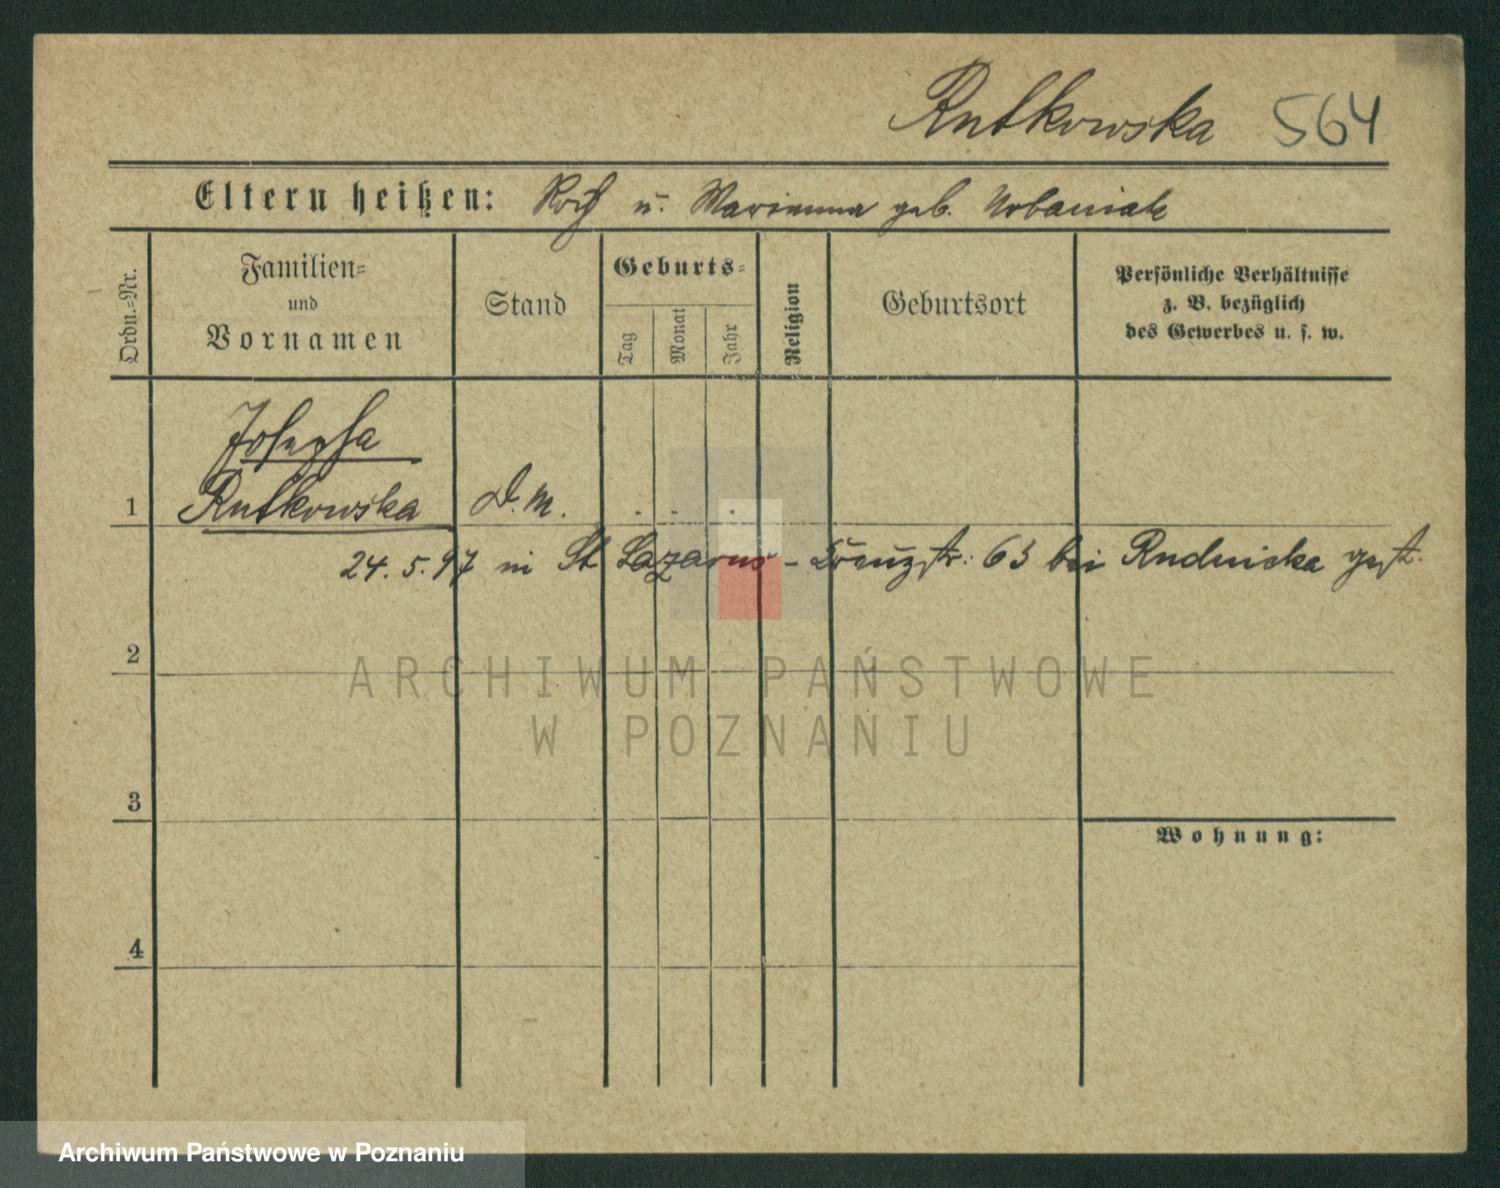 Rutkowska 564
Eltern heißen: Roch u. Marianna geb. Urbaniak
Ordn.-Nr.
Familien-
und
Vornamen
Stand
Geburts-
Tag
Monat
Jahr
Religion
Geburtsort
Persönliche Verhältnisse
z. B. bezüglich
des Gewerbes u. s. w.
Josepha
1 Rutkowska D. M.
24. 5. 97 in St Lazarus - Kreuzstr: 63 bei Rudnicka gest.
2
ARCHIWUM PAŃSTWOWE
W POZNANIU
3
Wohnung:
4
Archiwum Państwowe w Poznaniu